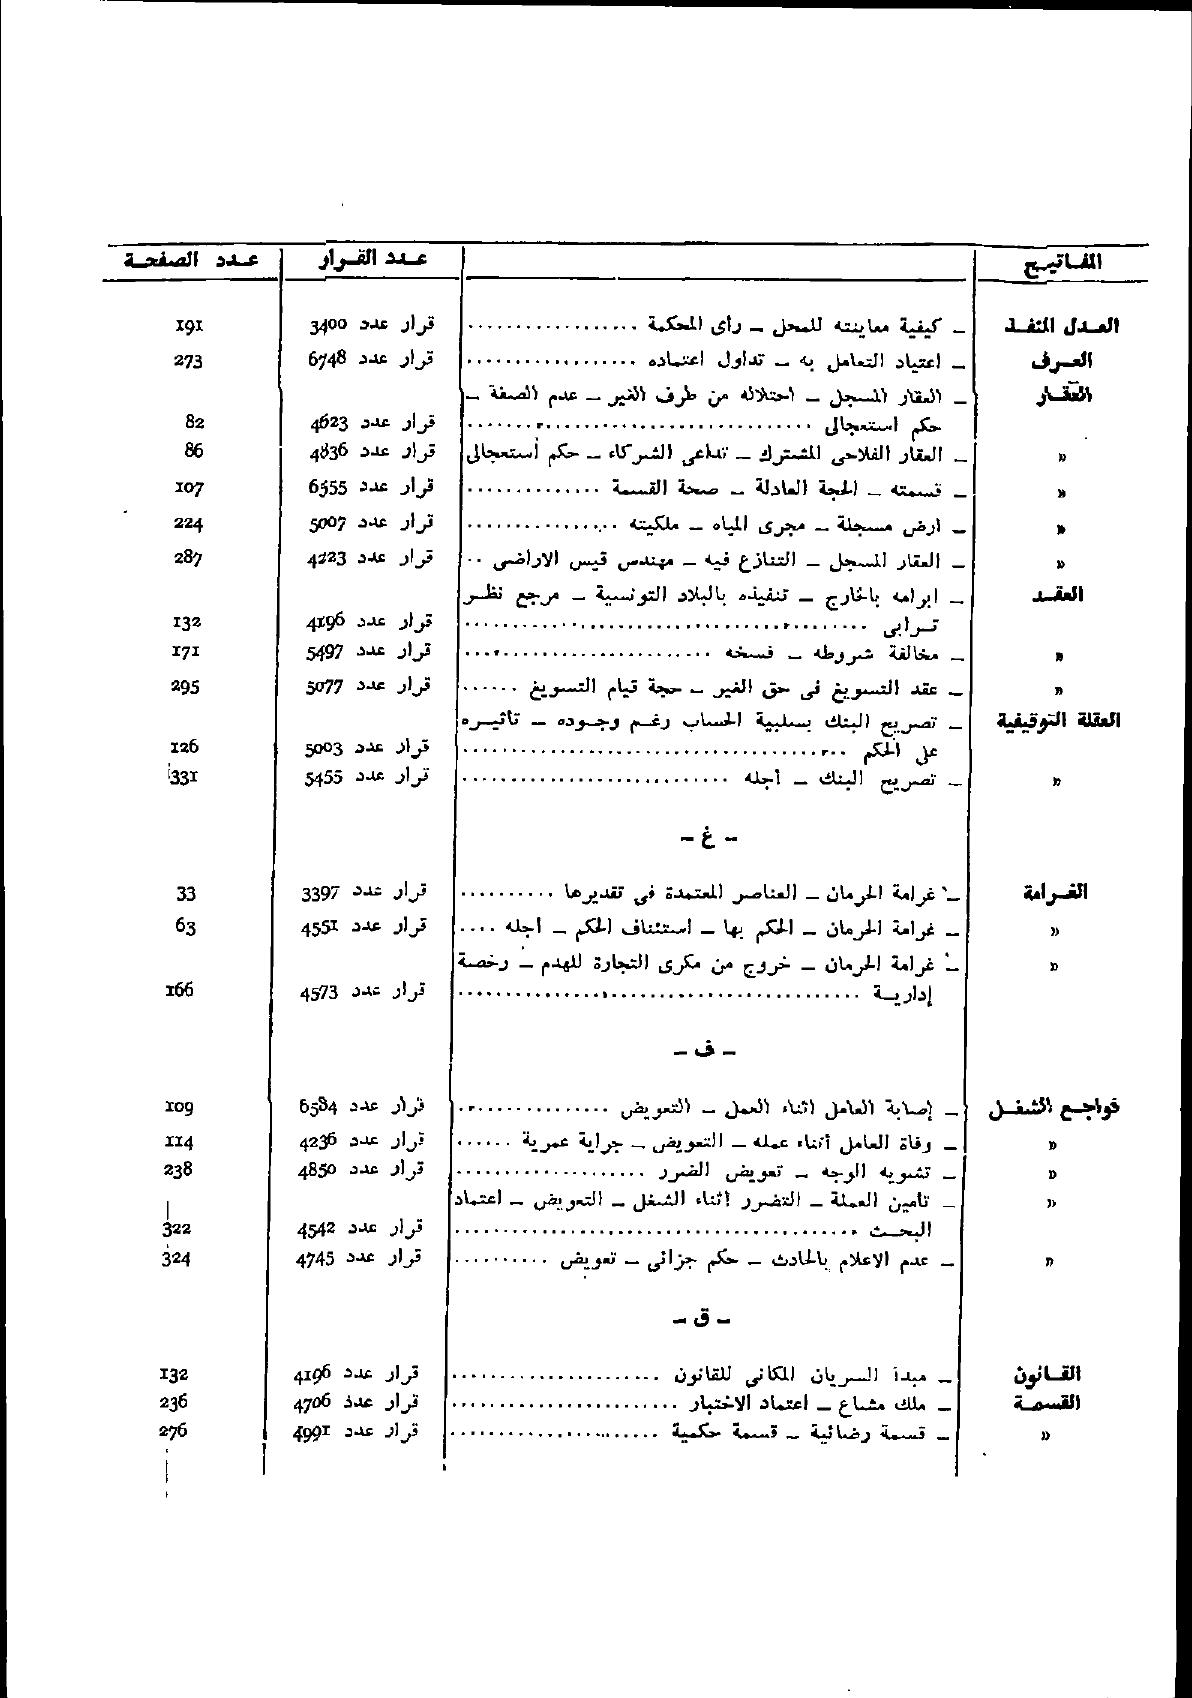 المفاتيح عدد القرار عدد الصفحة
العدل المنفذ – كيفية معاينته للمحل – رأى المحكمة .................. قرار عدد 3400 191
العرف – اعتياد التعامل به – تداول اعتماده .................. قرار عدد 6748 273
العقار – العقار المسجل – احتلاله من طرف الغير – عدم الصفة –
حكم استعجالى .................. قرار عدد 4623 82
» – العقار الفلاحى المشترك – تداعى الشركاء – حكم أستعجالى قرار عدد 4836 86
» – قسمته – الحجة العادلة – صحة القسمة .................. قرار عدد 6555 107
» – ارض مسجلة – مجرى المياه – ملكيته .................. قرار عدد 5007 224
» – العقار المسجل – التنازع فيه – مهندس قيس الاراضى .. قرار عدد 4223 287
العقد – ابرامه بالخارج – تنفيذه بالبلاد التونسية – مرجع نظر
ترابى .................. قرار عدد 4196 132
» – مخالفة شروطه – فسخه .................. قرار عدد 5497 171
» – عقد التسويغ فى حق الغير – حجة قيام التسويغ ...... قرار عدد 5077 295
العقلة التوقيفية – تصريح البنك بسلبية الحساب رغم وجوده – تاثيره
على الحكم .................. قرار عدد 5003 126
» – تصريح البنك – أجله .................. قرار عدد 5455 331
– غ –
الغرامة – غرامة الحرمان – العناصر المعتمدة فى تقديرها .......... قرار عدد 3397 33
» – غرامة الحرمان – الحكم بها – استئناف الحكم – اجله .... قرار عدد 4551 63
» – غرامة الحرمان – خروج من مكرى التجارة للهدم – رخصة
إدارية .................. قرار عدد 4573 166
– ف –
فواجع الشغل – إصابة العامل اثناء العمل – التعويض .................. قرار عدد 6584 109
» – وفاة العامل أثناء عمله – التعويض – جراية عمرية ...... قرار عدد 4236 114
» – تشويه الوجه – تعويض الضرر .................. قرار عدد 4850 238
» – تأمين العملة – التضرر اثناء الشغل – التعويض – اعتماد
البحث .................. قرار عدد 4542 322
» – عدم الاعلام بالحادث – حكم جزائى – تعويض .......... قرار عدد 4745 324
– ق –
القانون – مبدأ السريان المكانى للقانون .................. قرار عدد 4196 132
القسمة – ملك مشاع – اعتماد الاختبار .................. قرار عدد 4706 236
» – قسمة رضائية – قسمة حكمية .................. قرار عدد 4991 276